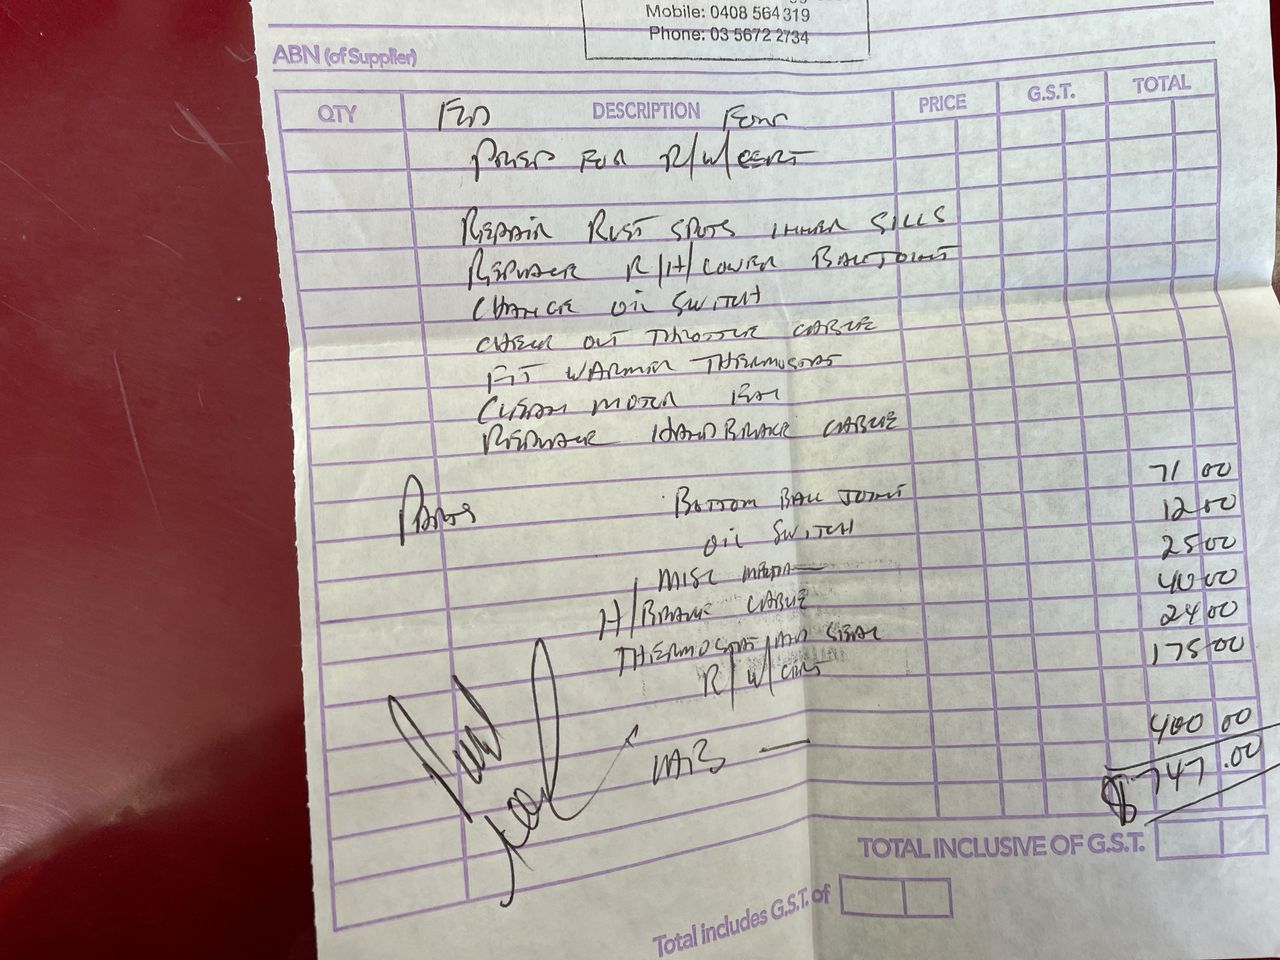 Mobile: 0408 564 319
Phone: 03 5672 2734
ABN (of Supplier)
QTY DESCRIPTION PRICE G.S.T. TOTAL
FOR R/W/CERT
REPAIR RUST SPOTS INNER SILLS
REPLACE R/H/LOWER BALLJOINT
CHANGE OIL SWITCH
CHECK OUT THROTTLE CABLE
FIT WARMER THERMOSTAT
CLEAN MOTOR
REPLACE HANDBRAKE CABLE
PARTS BOTTOM BALL JOINT 71 00
OIL SWITCH 12 00
MISC 25 00
H/BRAKE CABLE 40 00
THERMOSTAT AND SEAL 24 00
R/W/CERT 175 00
LAB — 400 00
Paid
$747.00
TOTAL INCLUSIVE OF G.S.T.
Total includes G.S.T. of